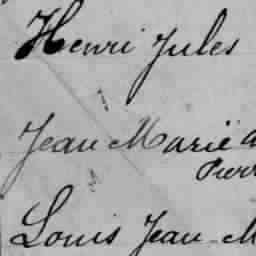 Henri Jules
Jean Marie
Louis Jean